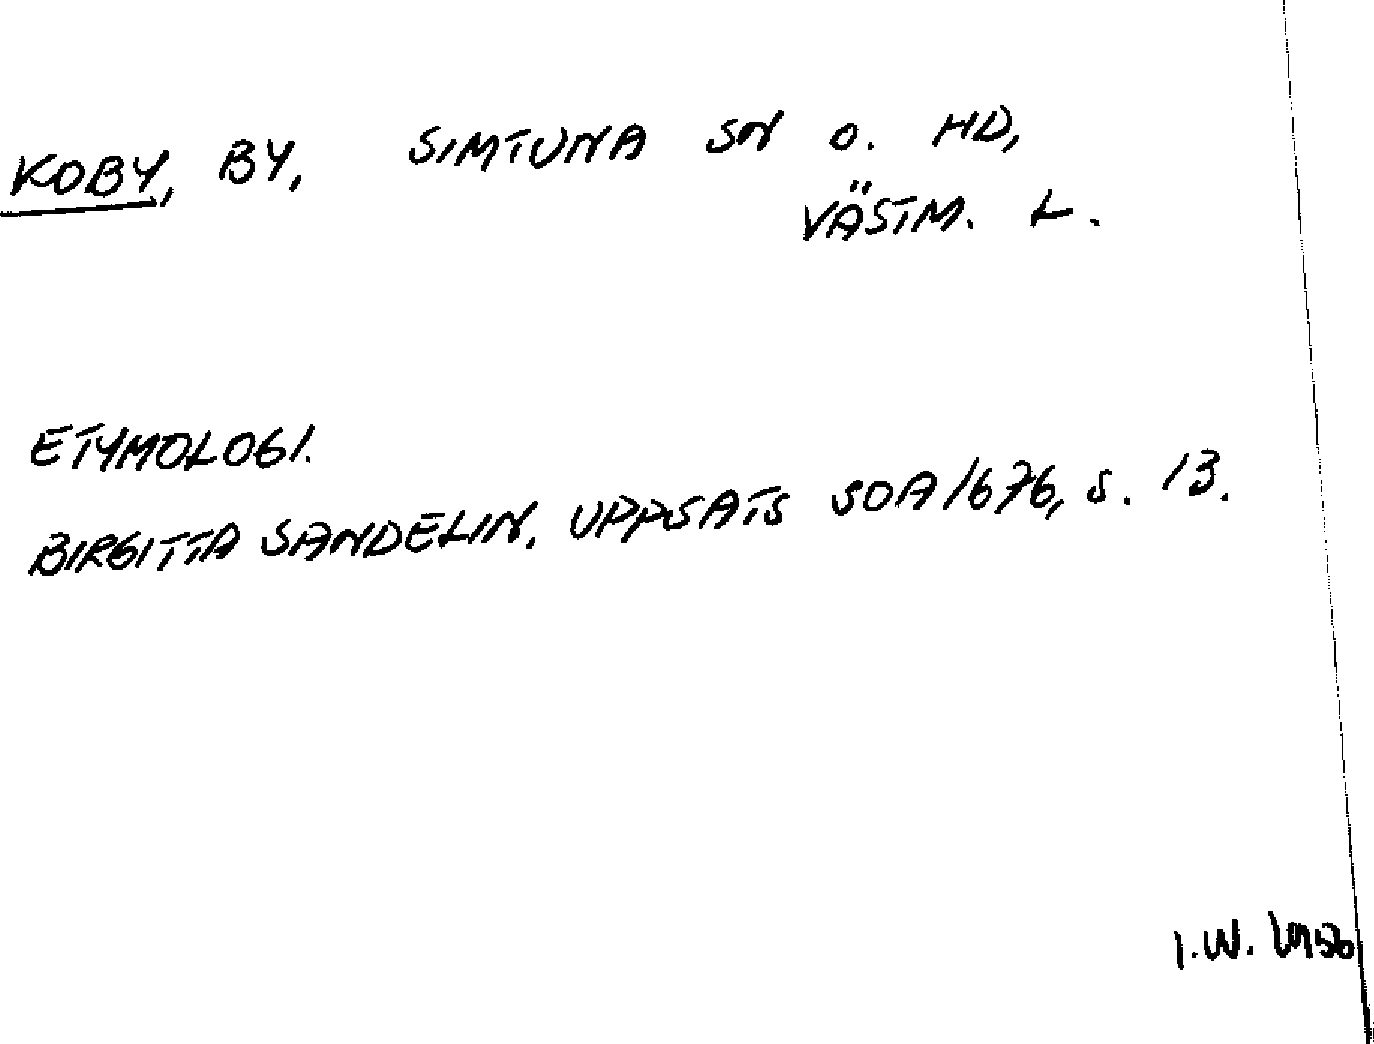 KOBY, BY, SIMTUNA SN O. HD,
VÄSTM. L.
ETYMOLOGI.
BIRGITTA SANDELIN, UPPSATS SOA 1676, S. 13.
I.W.